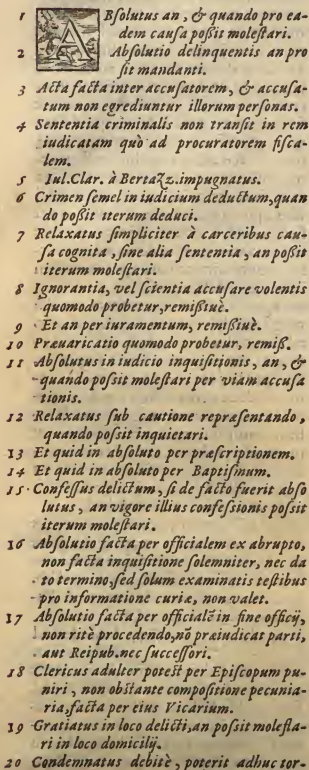 1 ABsolutus an, & quando pro ea-
dem causa possit molestari.
2 Absolutio delinquentis an pro
sit mandanti.
3 Acta facta inter accusatorem, & accusa-
tum non egrediuntur illorum personas.
4 Sententia criminalis non transit in rem
iudicatam quo ad procuratorem fisca-
lem.
5 Iul.Clar. à Bertazz.impugnatus.
6 Crimen semel in iudicium deductum,quan
do possit iterum deduci.
7 Relaxatus simpliciter à carceribus cau-
sa cognita, sine alia sententia, an possit
iterum molestari.
8 Ignorantia, vel scientia accusare volentis
quomodo probetur,remissiuè.
9 Et an per iuramentum, remissiuè.
10 Præuaricatio quomodo probetur, remiss.
11 Absolutus in iudicio inquisitionis, an, &
quando possit molestari per viam accusa
tionis.
12 Relaxatus sub cautione repræsentando,
quando possit inquietari.
13 Et quid in absoluto per præscriptionem.
14 Et quid in absoluto per Baptismum.
15 Confessus delictum, si de facto fuerit abso
lutus, an vigore illius confessionis possit
iterum molestari.
16 Absolutio facta per officialem ex abrupto,
non facta inquisitione solemniter, nec da
to termino,sed solum examinatis testibus
pro informatione curiæ, non valet.
17 Absolutio facta per officialē in fine officij,
non ritè procedendo,nō præiudicat parti,
aut Reipub.nec successori.
18 Clericus adulter potest per Episcopum pu-
niri, non obstante compositione pecunia-
ria,facta per eius Vicarium.
19 Gratiatus in loco delicti,an possit molesta-
ri in loco domicilij.
20 Condemnatus debitè, poterit adhuc tor-